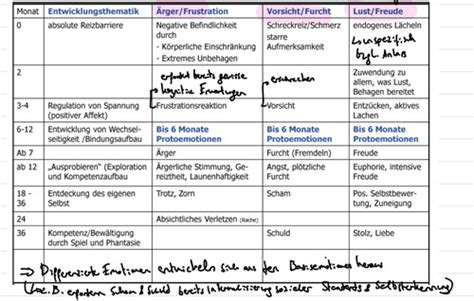 Monat Entwicklungsthematik Ärger/Frustration Vorsicht/Furcht Lust/Freude
0 absolute Reizbarriere Negative Befindlichkeit durch - Körperliche Einschränkung - Extremes Unbehagen Schreckreiz/Schmerz starre Aufmerksamkeit endogenes Lächeln
unspezifisch
bzgl. Anlass
2 Zuwendung zu allem, was Lust, Behagen bereitet
erfordert bereits gewisse
kognitive Erwartungen
erschrecken
3-4 Regulation von Spannung (positiver Affekt) Frustrationsreaktion Vorsicht Entzücken, aktives Lachen
6-12 Entwicklung von Wechselseitigkeit /Bindungsaufbau Bis 6 Monate Protoemotionen Bis 6 Monate Protoemotionen Bis 6 Monate Protoemotionen
Ab 7 Ärger Furcht (Fremdeln) Freude
ab 12 „Ausprobieren" (Exploration und Kompetenzaufbau Ärgerliche Stimmung, Gereiztheit, Launenhaftigkeit Angst, plötzliche Furcht Euphorie, intensive Freude
18 - 36 Entdeckung des eigenen Selbst Trotz, Zorn Scham Pos. Selbstbewertung, Zuneigung
24 Absichtliches Verletzen (Rache)
36 Kompetenz/Bewältigung durch Spiel und Phantasie Schuld Stolz, Liebe
⇒ Differenzierte Emotionen entwickeln sich aus den Basisemotionen heraus
z.B. erfordern Scham & Schuld bereits Internalisierung sozialer Standards & Selbsterkennung)